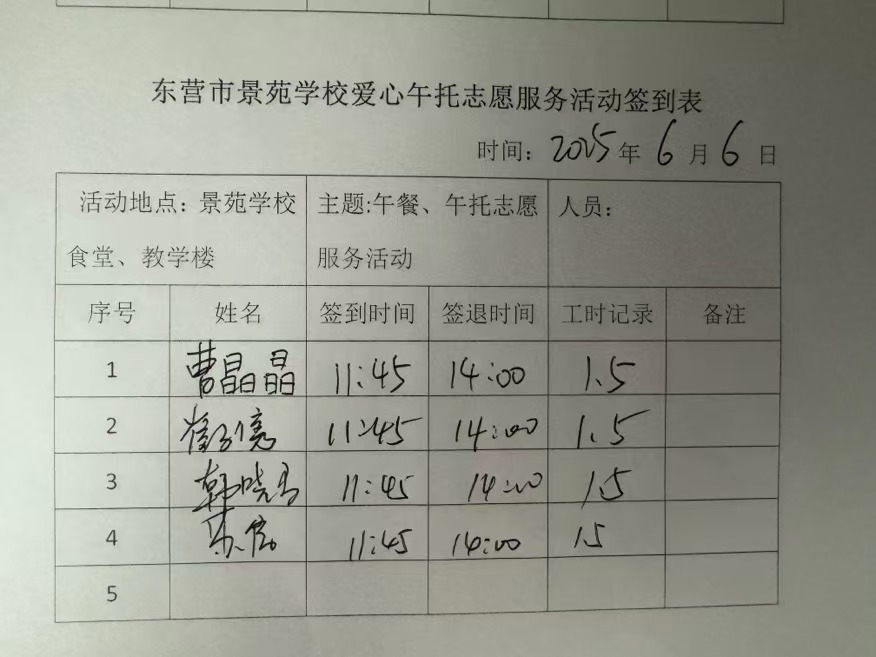 东营市景苑学校爱心午托志愿服务活动签到表
时间：2025年6月6日
活动地点：景苑学校食堂、教学楼 主题:午餐、午托志愿服务活动 人员：
序号 姓名 签到时间 签退时间 工时记录 备注
1 曹晶晶 11:45 14:00 1.5
2 11:45 14:00 1.5
3 韩晓 11:45 14:00 1.5
4 11:45 14:00 1.5
5